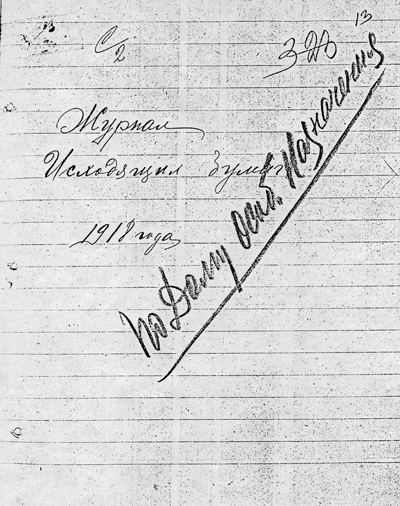 13
Журнал
Исходящих бумаг
1918 года
По Дому особ. Назначения